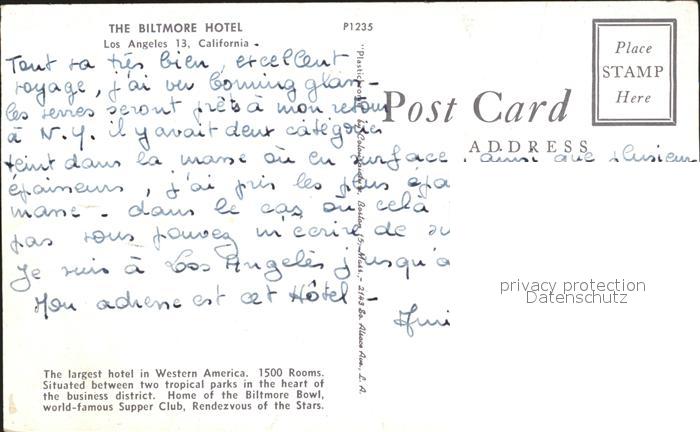 THE BILTMORE HOTEL
Los Angeles 13, California.
P1235
Tout va très bien, excellent
voyage, j'ai vu Corning glass -
les verres seront prêts à mon retour
à N.Y. il y avait deux catégories
teint dans la masse ou en surface. ainsi que plusieurs
épaisseurs, j'ai pris les plus épa
masse - dans le cas où cela
pas vous pouvez m'écrire de su
Je suis à Los Angelès jusqu'a
Mon adresse est cet Hôtel -
The largest hotel in Western America. 1500 Rooms.
Situated between two tropical parks in the heart of
the business district. Home of the Biltmore Bowl,
world-famous Supper Club, Rendezvous of the Stars.
Boston 15, Mass. - 2143 So. Ave., L. A.
Post Card
ADDRESS
Place
STAMP
Here
privacy protection
Datenschutz